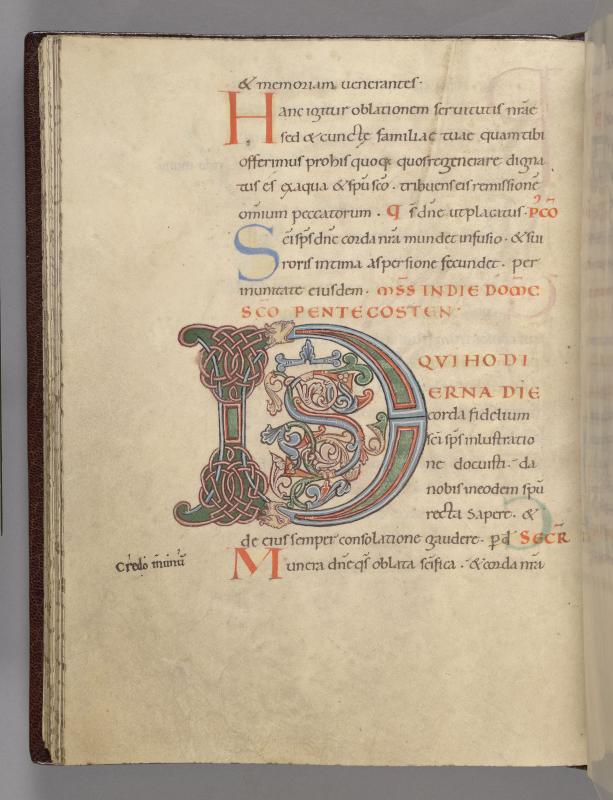 & memoriam uenerantes·
Hanc igitur oblationem seruitutis nr̄ae
sed & cunctę familiae tuae quam tibi
offerimus pro his quoq; quos regenerare digna
tus es ex aqua & sp̄u sc̄o · tribuens eis remissionē
omnium peccatorum · q̄s dn̄e ut placatus · PC̄O
Sc̄i sp̄s dn̄e corda nr̄a mundet infusio · & sui
roris intima aspersione fecundet · per
inunitate eiusdem · MSS IN DIE DOM̄C
SC̄O PENTECOSTEN·
DS QVI HODI
ERNA DIE
corda fidelium
sc̄i sp̄s inlustratio
ne docuisti · da
nobis in eodem sp̄u
recta sapere · &
de eius semper consolatione gaudere · p̄ d̄ SECR̄
Munera dn̄e q̄s oblata sc̄ifica · & corda nr̄a
Credo